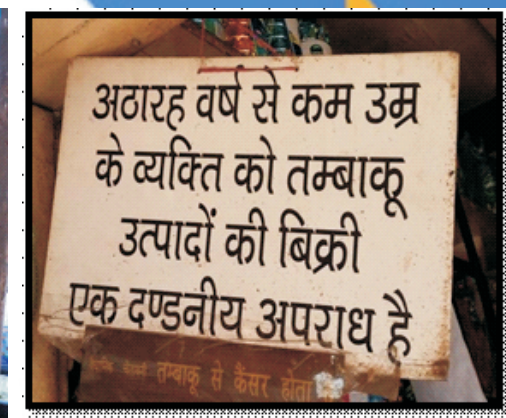 अठारह वर्ष से कम उम्र
के व्यक्ति को तम्बाकू
उत्पादों की बिक्री
एक दण्डनीय अपराध है
तम्बाकू से कैंसर होता